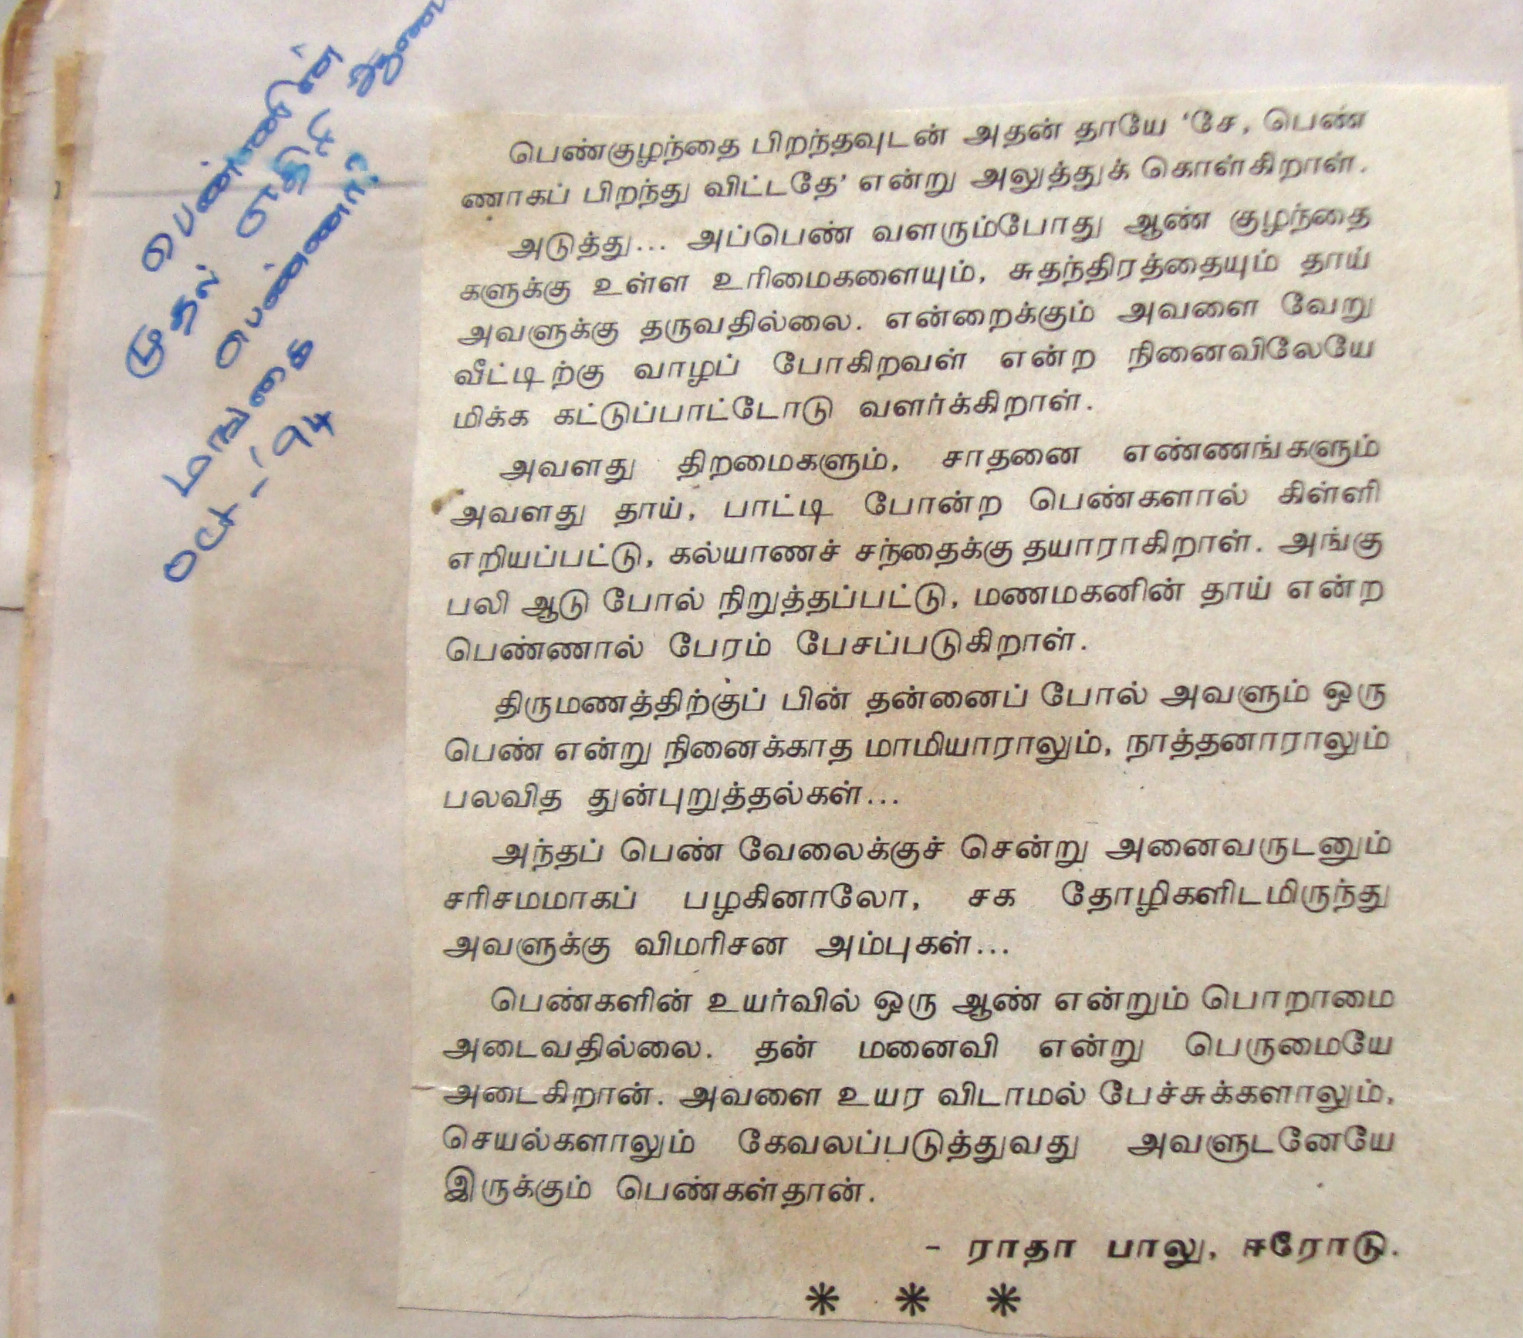 பெண்ணின்
முதல் எதிரி
பெண்ணா?
மங்கை
Oct - '94
பெண்குழந்தை பிறந்தவுடன் அதன் தாயே ‘சே, பெண்
ணாகப் பிறந்து விட்டதே’ என்று அலுத்துக் கொள்கிறாள்.
அடுத்து... அப்பெண் வளரும்போது ஆண் குழந்தை
களுக்கு உள்ள உரிமைகளையும், சுதந்திரத்தையும் தாய்
அவளுக்கு தருவதில்லை. என்றைக்கும் அவளை வேறு
வீட்டிற்கு வாழப் போகிறவள் என்ற நினைவிலேயே
மிக்க கட்டுப்பாட்டோடு வளர்க்கிறாள்.
அவளது திறமைகளும், சாதனை எண்ணங்களும்
அவளது தாய், பாட்டி போன்ற பெண்களால் கிள்ளி
எறியப்பட்டு, கல்யாணச் சந்தைக்கு தயாராகிறாள். அங்கு
பலி ஆடு போல் நிறுத்தப்பட்டு, மணமகனின் தாய் என்ற
பெண்ணால் பேரம் பேசப்படுகிறாள்.
திருமணத்திற்குப் பின் தன்னைப் போல் அவளும் ஒரு
பெண் என்று நினைக்காத மாமியாராலும், நாத்தனாராலும்
பலவித துன்புறுத்தல்கள்...
அந்தப் பெண் வேலைக்குச் சென்று அனைவருடனும்
சரிசமமாகப் பழகினாலோ, சக தோழிகளிடமிருந்து
அவளுக்கு விமரிசன அம்புகள்...
பெண்களின் உயர்வில் ஒரு ஆண் என்றும் பொறாமை
அடைவதில்லை. தன் மனைவி என்று பெருமையே
அடைகிறான். அவளை உயர விடாமல் பேச்சுக்களாலும்,
செயல்களாலும் கேவலப்படுத்துவது அவளுடனேயே
இருக்கும் பெண்கள்தான்.
- ராதா பாலு, ஈரோடு.